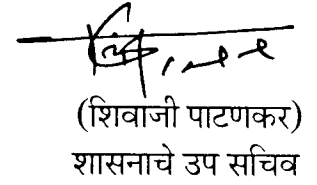 (शिवाजी पाटणकर)
शासनाचे उप सचिव